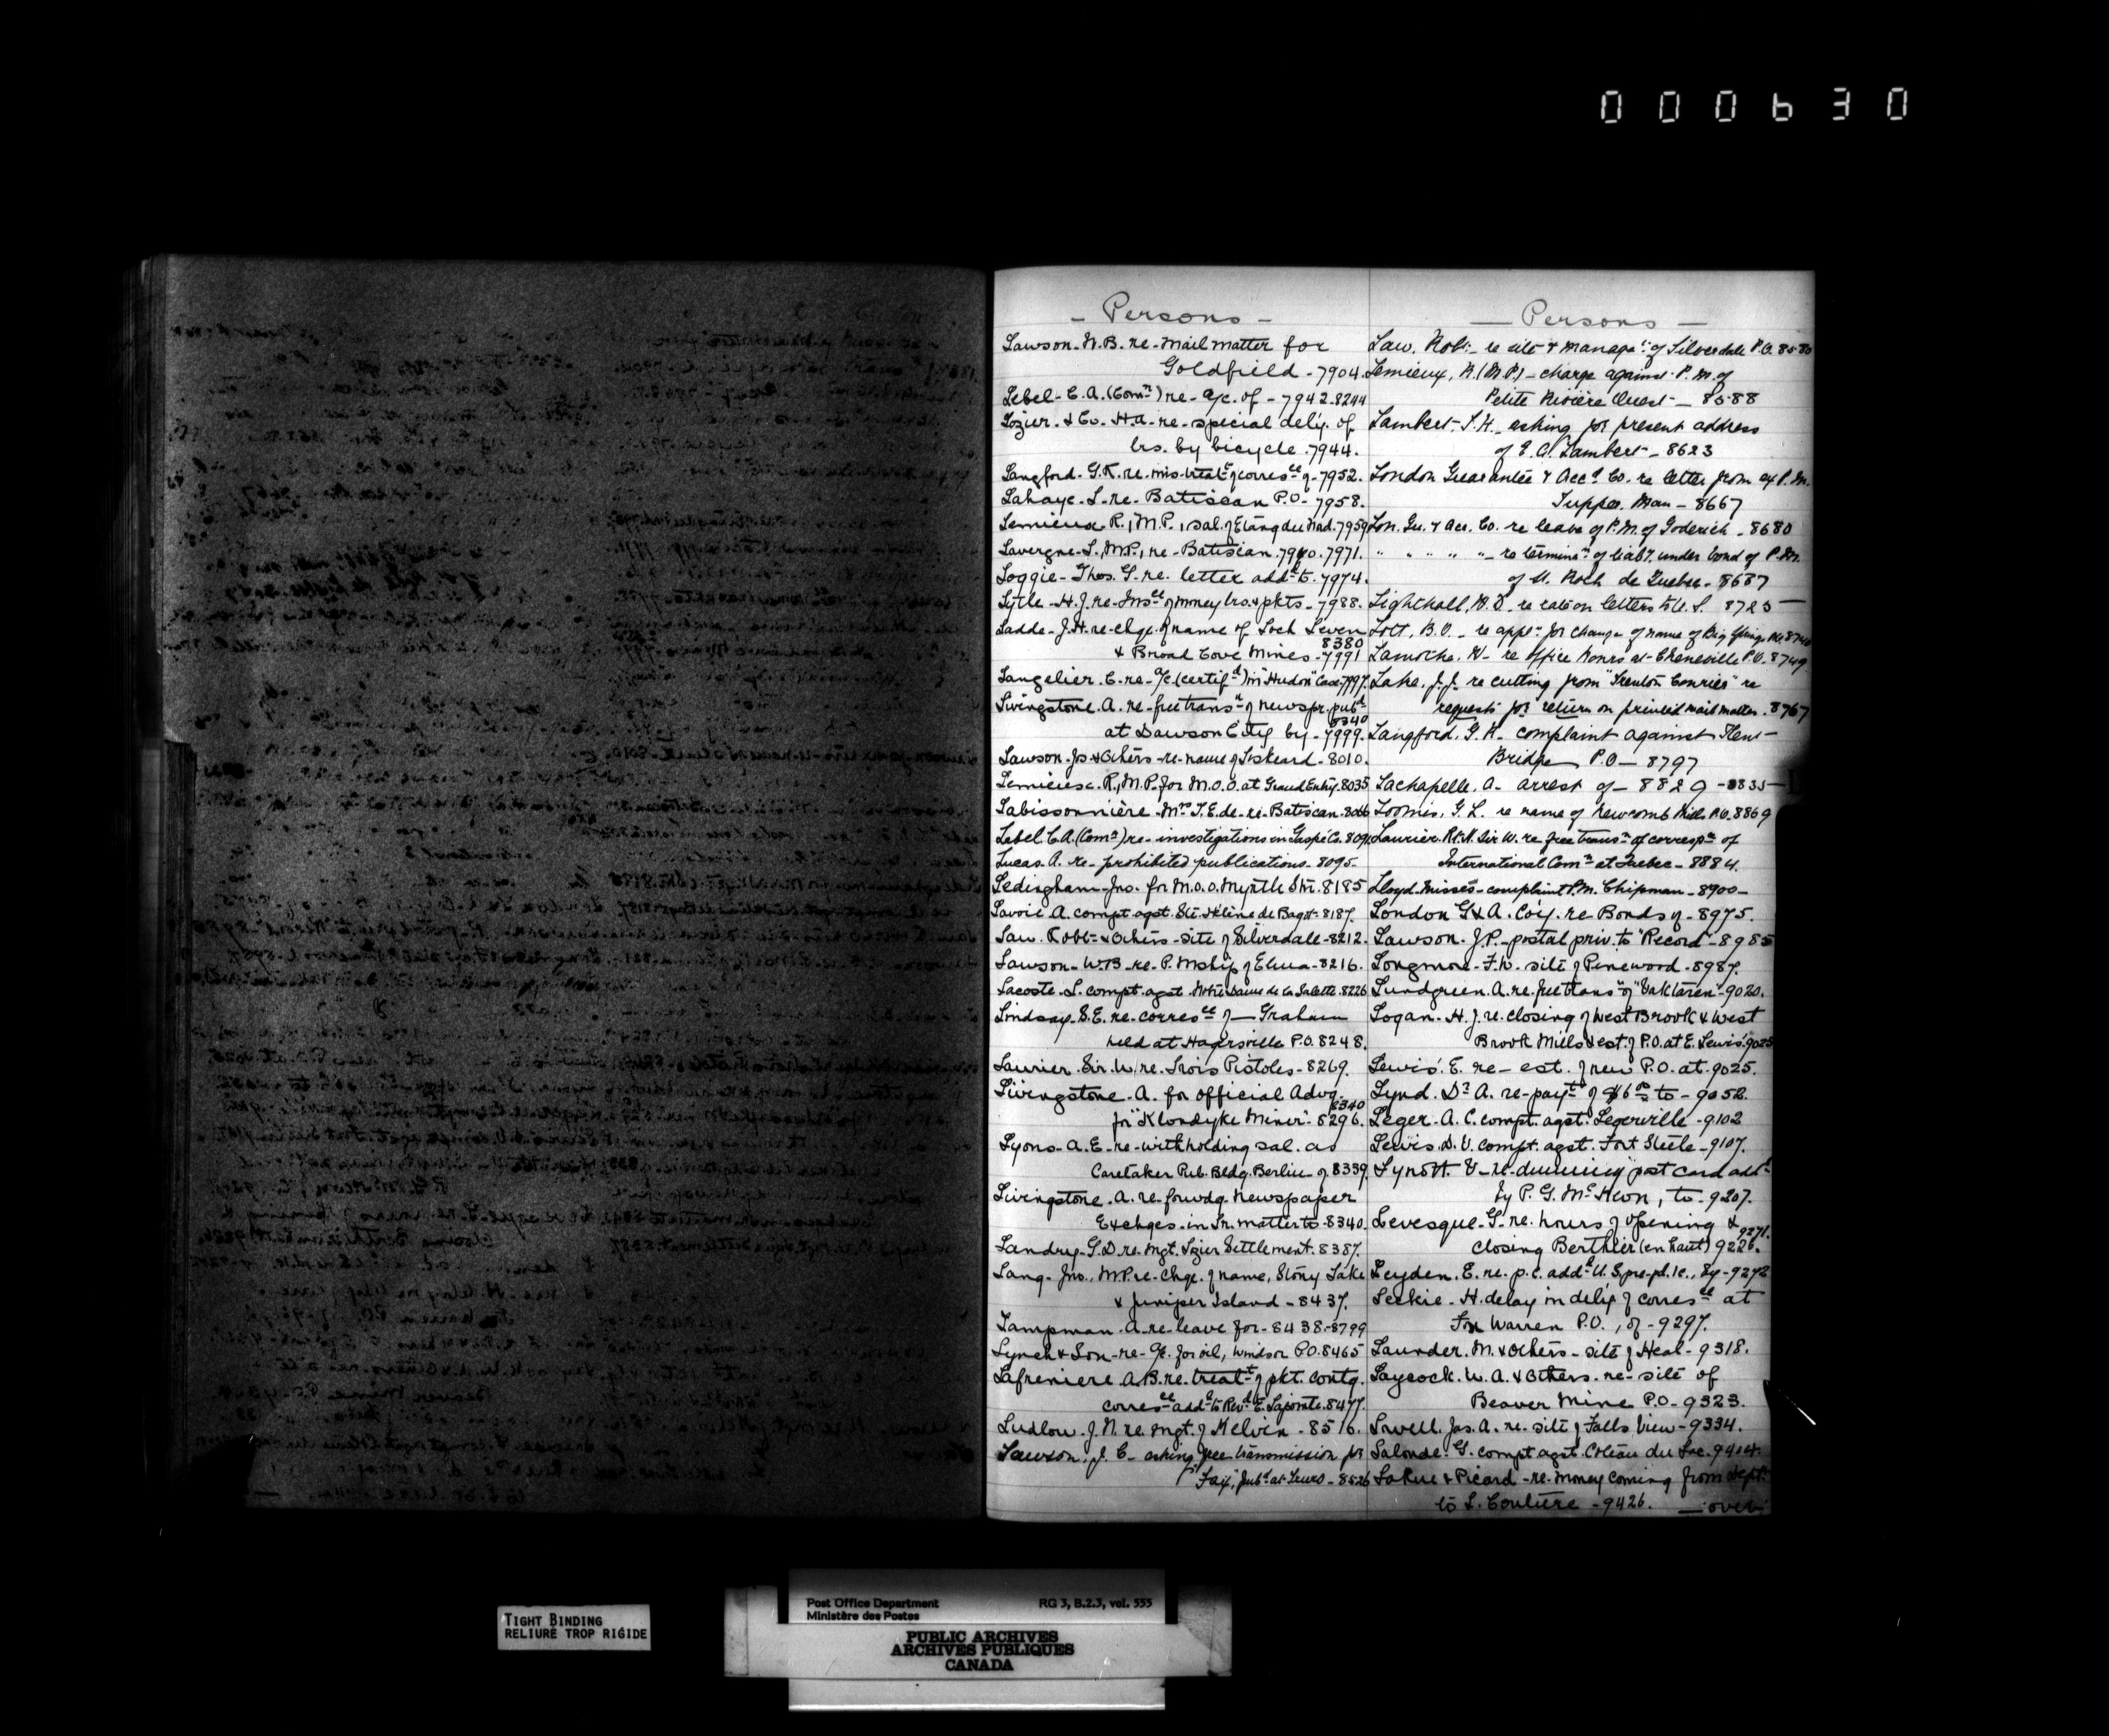 000630
- Persons -
Lawson - W.B. re - Mail matter for
Goldfield - 7904.
Lebel - E.A. (Comr) re - a/c. of - 7942.8244
Lozier - & Co. H.A. re - special dely. of
lrs. by bicycle. 7944.
Langford - G.K. re. mis-treatt of corresce of - 7952.
Lahaye - L. re - Batiscan P.O - 7958.
Lemieux R., M.P., sal. of Etang du Nord. 7959
Lavergne - L., M.P., re - Batiscan. 7940. 7971.
Loggie - Thos. G. re. letter addd to. 7974.
Lytle - H.J. re - Insce of money lrs. & pkts - 7988.
Ladde - J.H. re - chge. of name of Loch Leven
8380
& Broad Cove Mines - 7991
Langelier. C. re - a/c (certifd) in "Hudon" Case - 7997.
Livingstone. A. re - free transn of newspr. pubd
8340
at Dawson City by - 7999.
Lawson - Js & Others - re - name of Liskeard - 8010.
Lemieux - R., M.P. for M.O.O. at Grand Entry. 8035
Labissonnière - Mrs T.E. de - re - Batiscan - 8066
Lebel. E.A. (Comr) re - investigations in Gaspé Co. 809
Lucas. A. re - prohibited publications - 8095 -
Ledingham - Jno. for M.O.O. Myrtle Stn. 8185
Lavoie. A. compt. agst. Ste. Hélène de Bagot - 8187.
Law. Robt & Others - site of Silverdale - 8212.
Lawson - W.B. re - P. Mship of Elma - 8216.
Lacoste - L. compt. agst. Notre Dame de la Salette. 8226
Lindsay. S.E. re - corresce of — Graham
held at Hagersville P.O. 8248.
Laurier. Sir. W. re. Trois Pistoles - 8269.
Livingstone - A. for official Advg.
8340
for "Klondyke Miner" - 8296.
Lyons - A.E. re - withholding sal. as
Caretaker Pub. Bldg. Berlin - of 8339.
Livingstone. A. re - forwdg. newspaper
Exchges - in Pr. matter to - 8340.
Landry - G.D. re. Mgt. Lozier Settlement. 8387.
Lang - Jno., M.P. re - Chge. of name, Stony Lake
& Juniper Island - 8437.
Lampman - A. re - leave for - 8438 - 8799
Lynch & Son - re - a/c. for oil, Windsor P.O. 8465
Lafreniere. A.B. re. treatt of pkt. contg.
corresce addd to Revd E. Laporate. 8477.
Ludlow. J.N. re. Mgt. of Kelvin - 8516.
Lawson, J. C - asking free transmission for
"Fax", pubd at Truro - 8526
— Persons —
Law, Robt - re site & managet of Silverdale P.O. 8580
Lemieux, R. (M.P.) - charge against P.M. of
Petite Rivière Ouest — 8588
Lambert, S.H. - asking for present address
of E.A. Lambert - 8623
London Guarantee & Acct Co. re letter from ex P.M.
Tupper, Man - 8667
Lon. Gu. & Acc. Co. re leave of P.M. of Goderich - 8680
" " " " " - re terminn of liaby. under bond of P.M.
of St. Roch de Quebec - 8687
Lighthall, W.D. re rate on letters to U.S. 8723 —
Lott, B.O. - re appn for change of name of Big Springs
Laroche, W - re office hours at Cheneville P.O. 8749
Lake, J.J. re cutting from "Trenton Courier" re
requests for return on printed mail matter. 8767
Langford, G.K. complaint against
Bridge P.O — 8797
Lachapelle, A. arrest of - 8829 - 8835 —
Loomis, G.L. re name of Newcomb Mills P.O. 8869
Laurier. Rt. H. Sir W. re. free transn of correspce of
International Comn at Quebec - 8884.
Lloyd - Misses - complaint P.M. Chipman - 8900 -
London G & A. Co'y. re Bonds of - 8975.
Lawson - J.P. - postal priv. to "Record" - 8985
Longmore - F.W. site of Pinewood - 8987.
Lundgreen. A. re. free trans'n of "Vaktaren" - 9020.
Logan - H.J. re. closing of West Brook & West
Brook Mills & est. of P.O. at E. Lewis'. 9025
Lewis'. E. re - est. of new P.O. at. 9025.
Lynd. Dr A. re - payt of $6 to - 9052.
Leger. A.C. compt. agst. Legerville - 9102
Lewis. D.V. compt. agst. Fort Steele - 9107.
Lynott. V - re - dunning post card addd
by P.G. McKeon, to - 9207.
Levesque - G. re. hours of opening &
9271.
closing Berthier (en haut) 9226.
Leyden. E. re. p.c. addd U.S. pre-pd. 1c., by - 9272
Leckie - H. delay in dely. of corresce at
Fox Warren P.O., of - 9297.
Launder. M. & Others - site of Heal - 9318.
Laycock. W.A. & Others. re - site of
Beaver Mine P.O. - 9323.
Lowell. Jas. A. re. site of Falls View - 9334.
Lalonde. G. compt agst. Côteau du Lac. 9404.
LaRue & Picard - re. money coming from Dept.
to L. Couture - 9426. — over
L
TIGHT BINDING
RELIURE TROP RIGIDE
Post Office Department RG 3, B.2.3, vol. 555
Ministère des Postes
PUBLIC ARCHIVES
ARCHIVES PUBLIQUES
CANADA